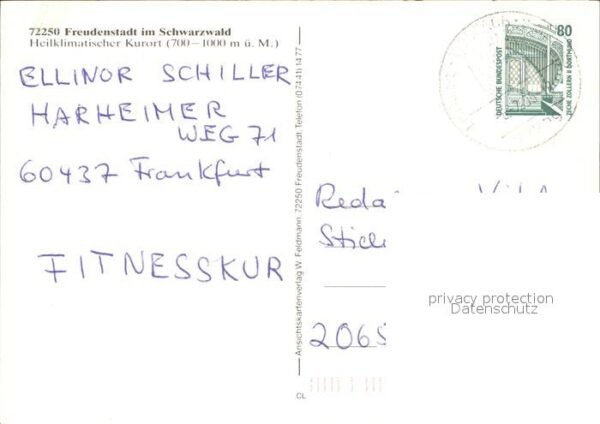 72250 Freudenstadt im Schwarzwald
Heilklimatischer Kurort (700–1000 m ü. M.)
ELLINOR SCHILLER
HARHEIMER
WEG 71
60437 Frankfurt
FITNESSKUR
Ansichtskartenverlag W. Feldmann, 72250 Freudenstadt, Telefon (07441) 1477
CL
80
DEUTSCHE BUNDESPOST
ZECHE ZOLLERN II DORTMUND
privacy protection
Datenschutz
2065